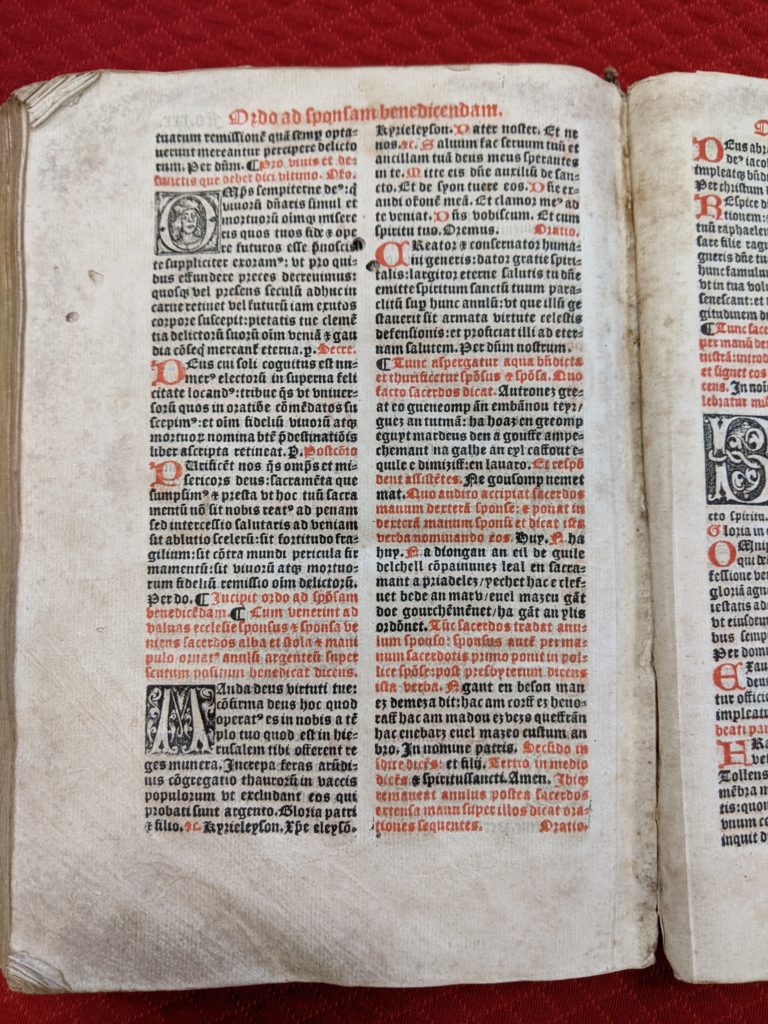 Ordo ad sponsam benedicendam.
tuarum remissionē quā semꝑ opta-
uerunt mereantur percipere delicto
rum. Per dūm. ¶ Pro viuis et de-
functis que debet dici vltimo. Oro.
OMp̄s sempiterne deꝰ: q̇
viuorū dn̄aris simul et
mortuorū oīmqꝫ misere
ris quos tuos fide ⁊ ope
re futuros esse p̄noscis
te suppliciter exoramꝰ: vt pro qui-
bus effundere preces decreuimus:
quosqꝫ vel presens seculū adhuc in
carne retinet vel futurū iam exutos
corpore suscepit: pietatis tue clemē
tia delictorū suorū oīm veniā ⁊ gau
dia cōseq̇ mereant̄ eterna. p. Secre.
DEus cui soli cognitus est nu-
merꝰ electorū in superna feli
citate locandꝰ: tribue q̄s vt vniuer-
sorū quos in oratiōe cōmēdatos su
scepimꝰ: et oīm fideliū viuorū atqꝫ
mortuoꝝ nomina btē p̄destinatiōis
liber ascripta retineat. P. Postcōio
PUrificēt nos q̄s omp̄s et mi-
sericors deus: sacramēta que
sumpsimꝰ ⁊ presta vt hoc tuū sacra
mentū nō sit nobis reatꝰ ad penam
sed intercessio salutaris ad veniam
sit ablutio scelerū: sit fortitudo fra-
gilium: sit cōtra mundi pericula fir
mamentū: sit viuorū atqꝫ mortuo-
rum fideliū remissio oīm delictorū.
Per do. ¶ Incipit ordo ad spōsam
benedicēdam. ¶ Cum venerint ad
valuas ecclesie sponsus ⁊ sponsa ve
niens sacerdos alba et stola ⁊ mani
pulo ornatꝰ annulū argenteū super
scutum positum benedicat dicens.
MAnda deus virtuti tue:
cōfirma deus hoc quod
operatꝰ es in nobis a tē
plo tuo quod est in hie-
rusalem tibi offerent re
ges munera. Increpa feras arūdi-
nis cōgregatio thaurorū in vaccis
populorum vt excludant eos qui
probati sunt argento. Gloria patri
⁊ filio. ⁊c. Kyrieleyson. Xp̄e eleysō.
Kyrieleyson. Pater noster. Et ne
nos. ⁊c. Saluum fac seruum tuū et
ancillam tuā deus meus sperantes
in te. Mitte eis dn̄e auxiliū de san-
cto. Et de syon tuere eos. Dn̄e ex-
audi orōnē meā. Et clamor meꝰ ad
te veniat. Dn̄s vobiscum. Et cum
spiritu tuo. Oremus. Oratio.
CReator ⁊ conseruator huma-
ni generis: dator gratie spiri-
talis: largitor eterne salutis tu dn̄e
emitte spiritum sanctū tuum para-
clitū suꝑ hunc annulū: vt que illū ge
stauerit sit armata virtute celestis
defensionis: et proficiat illi ad eter-
nam salutem. Per dūm nostrum.
¶ Tunc aspergatur aqua bn̄dicta
et thurificetur spōsus ⁊ spōsa. Quo
facto sacerdos dicat. Autronez gre-
at eo gueneomp an embānou teyr/
guez an tutmā: ha hoaz en greomp
eguyt mardeus den a gouffe ampe-
chemant na galhe an eyl caffout e-
quile e dimiziff: en lauaro. Et respō
dent assistētes. Ne gousomp nemet
mat. Quo audito accipiat sacerdos
manum dexterā sponse: ⁊ ponat in
dexterā manum sponsi et dicat ista
verba nominando eos. Huy. N. ha
huy. N. a diongan an eil de guile
delchell cōpainunez leal en sacra-
mant a priadelez/ yechet hac e clef-
uet bede an maru/ euel mazeu gāt
doe gourchēmēnet/ ha gāt an ylis
ordōnet. Tūc sacerdos tradat annu
lum sponso: sponsus autē per ma-
num sacerdotis primo ponit in pol-
lice spōse: post presbyterum dicens
ista verba. N gant en beson man
ez demeza dit: hac am corff ez heno-
raff hac am madou ez vezo queffrān
hac enebarz euel mazeo custum an
bro. In nomine patris. Secūdo in
īdice dicēs: et filij. Tertio in medio
dicēs ⁊ spiritussancti. Amen. Ibiqꝫ
remaneat annulus postea sacerdos
extensa manu super illos dicat ora-
tiones sequentes. Oratio.
DEus abr
deꝰ iacob
impleatqꝫ
Per christum
REspice
tionem:
tuū raphaelem
sare filie rag
gneris dn̄e tu
hunc famulum
vt in tua volu
senescant: et
gitudinem d
¶ Tunc sace
per manū de
nistrā: introd
et signet eos
cens. In noi
lebratur mi
cto spiritu.
Gloria in
OMnip
qui de
fessione ve
gloriā agn
iestatis ad
vt eiusdem
bus semp
Per domi
EXau
deus
tur offici
impleatu
beati pat
Tollens
mēbra m
tis: quon
vnum co
inquit d